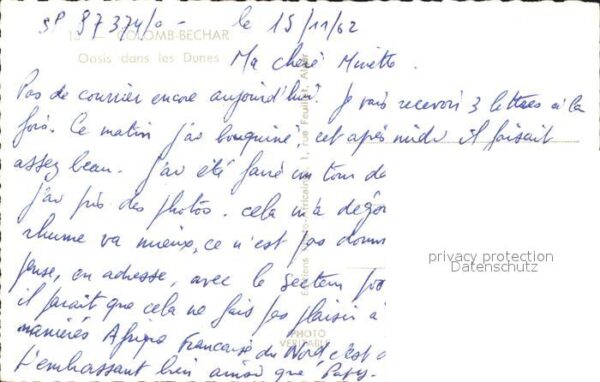 SP 87374/a - le 15/11/62
13 - COLOMB-BECHAR
Oasis dans les Dunes
Ma chère Minette.
Pas de courrier encore aujourd'hui. Je vais recevoir 3 lettres à la
fois. Ce matin j'ai bouquiné, cet après midi il faisait
assez beau. J'ai été faire un tour de
j'ai pris des photos. cela m'a
rhume va mieux, ce n'est pas
en adresse, avec le secteur
il parait que cela ne fais pas plaisir à
Afrique Française du Nord c'est
T'embrassant bien ainsi que
1, rue Feuillet, Alger
PHOTO
VERITABLE
privacy protection
Datenschutz